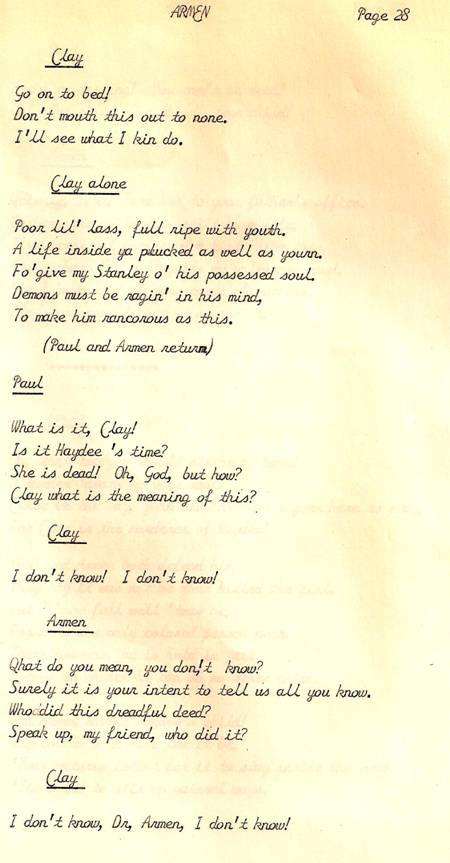 ARMEN Page 28
Clay
Go on to bed!
Don't mouth this out to none.
I'll see what I kin do.
Clay alone
Poor lil' lass, full ripe with youth.
A life inside ya plucked as well as yourn.
Fo'give my Stanley o' his possessed soul.
Demons must be ragin' in his mind,
To make him rancorous as this.
(Paul and Armen return)
Paul
What is it, Clay!
Is it Haydee 's time?
She is dead! Oh, God, but how?
Clay what is the meaning of this?
Clay
I don't know! I don't know!
Armen
Qhat do you mean, you don,'t know?
Surely it is your intent to tell us all you know.
Who did this dreadful deed?
Speak up, my friend, who did it?
Clay
I don't know, Dr, Armen, I don't know!